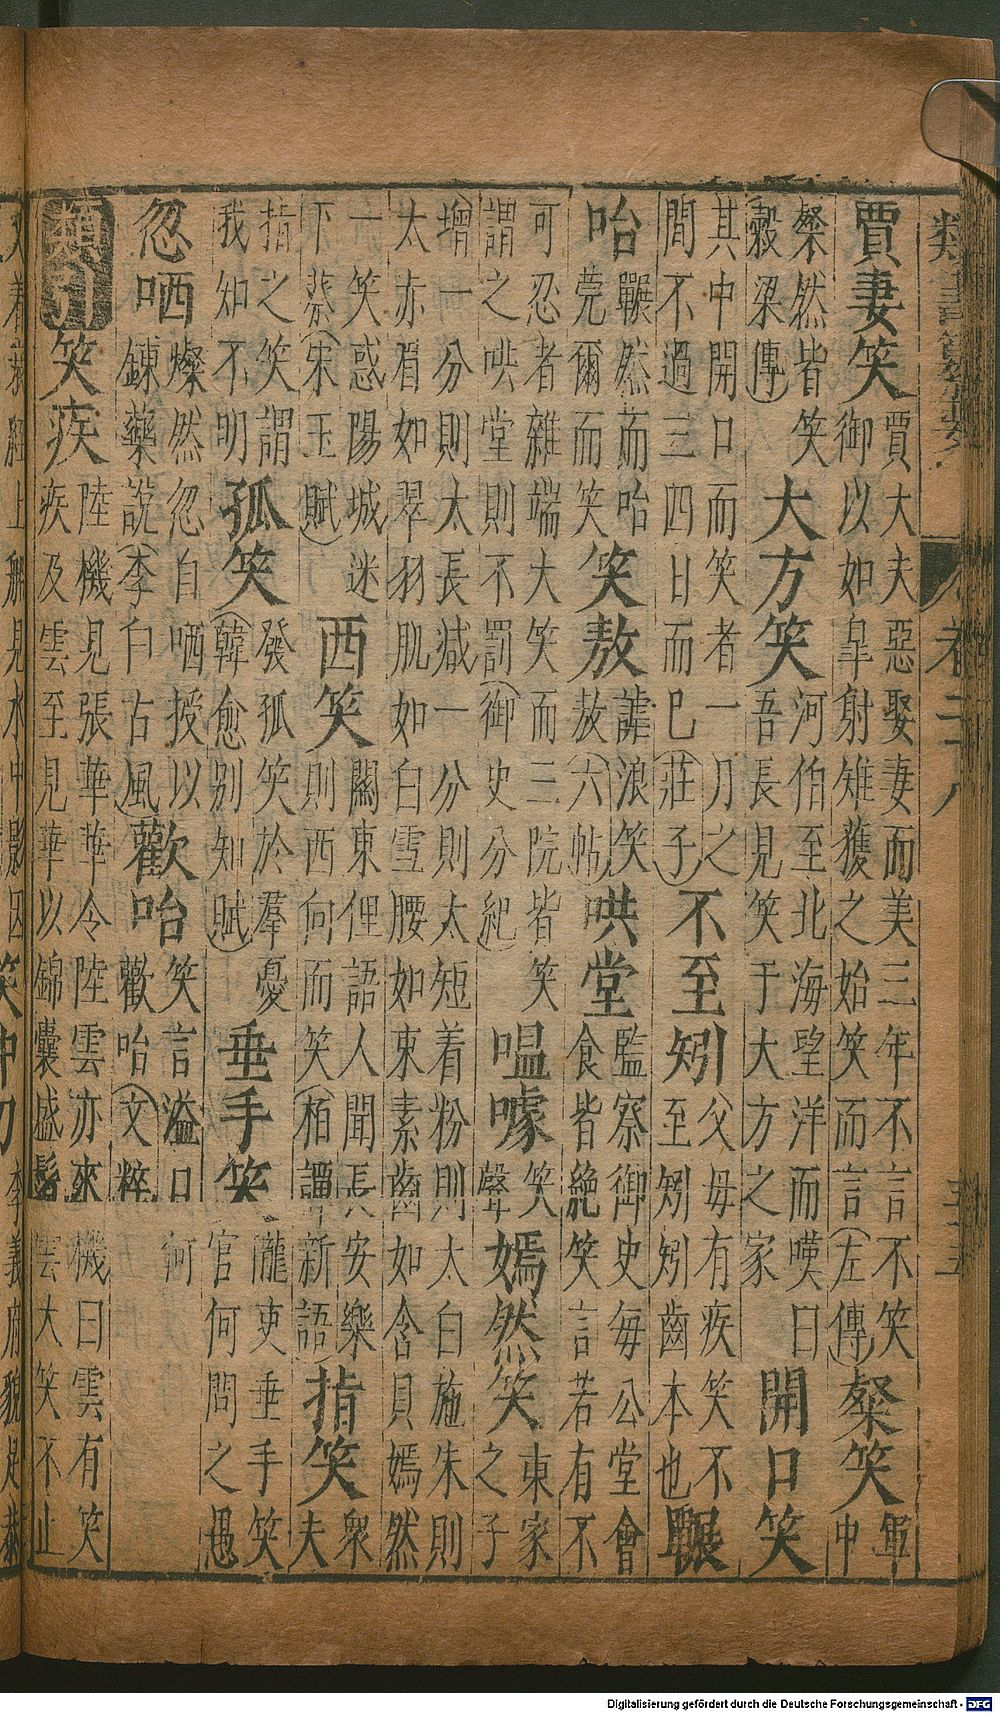 類書纂要 卷二十八
賈妻笑
賈大夫惡娶妻而美三年不言不笑
御以如皋射雉獲之始笑而言(左傳)
粲笑
軍
中
粲然皆笑
穀梁傳)
大方笑
河伯至北海望洋而嘆曰
吾長見笑于大方之家
開口笑
其中開口而笑者一月之
間不過三四日而已(莊子)
不至矧
父母有疾笑不
至矧矧齒本也
囅
咍
囅然而咍
莞爾而笑
笑敖
謔浪笑
敖(六帖)
哄堂
監察御史每公堂會
食皆絶笑言若有不
可忍者雜端大笑而三院皆笑
謂之哄堂則不罰(御史分紀)
嗢噱
笑
聲
嫣然笑
東家
之子
增一分則太長減一分則太短着粉則太白施朱則
太赤眉如翠羽肌如白雪腰如束素齒如含貝嫣然
一笑惑陽城迷
下蔡(宋玉賦)
西笑
關東俚語人聞長安樂
則西向而笑(栢譚新語)
指笑
衆
夫
指之笑謂
我知不明
孤笑
發孤笑於羣憂
(韓愈別知賦)
垂手笑
瀧吏垂手笑
官何問之愚
忽哂
燦然忽自哂授以
鍊藥說(李白古風)
歡咍
笑言溢口何
歡咍(文粹)
類引
笑疾
陸機見張華華令陸雲亦來機曰雲有笑
疾及雲至見華以錦囊盛髯雲大笑不止
上船見水中影因
笑中刀
李義府貌足恭
Digitalisierung gefördert durch die Deutsche Forschungsgemeinschaft - DFG